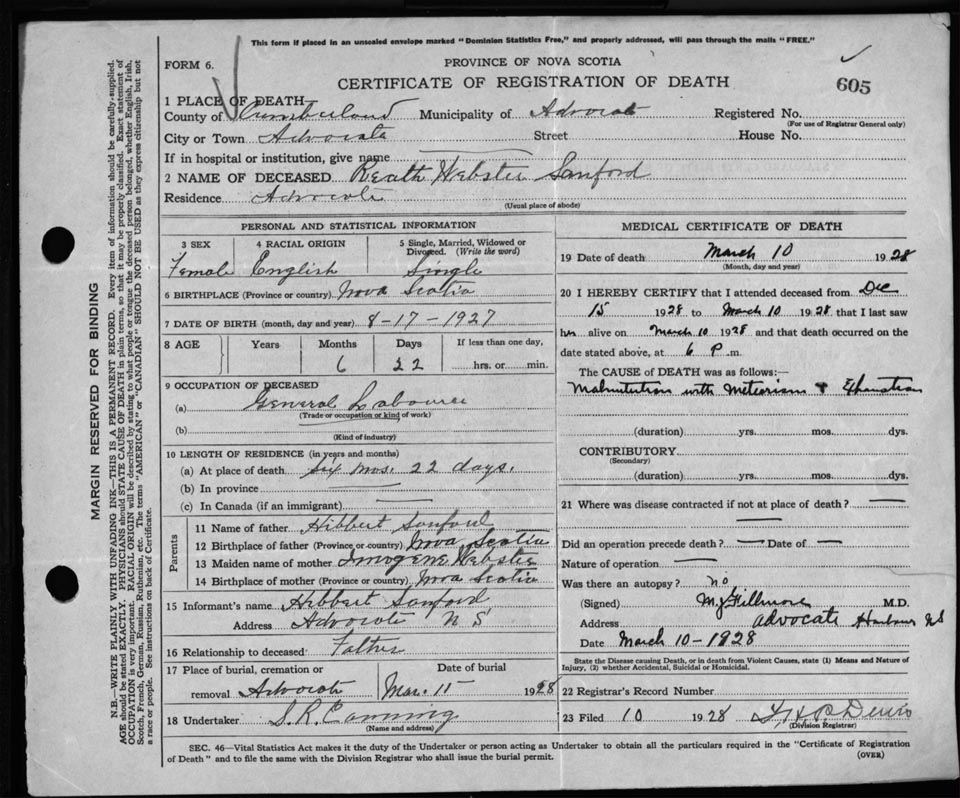 This form if placed in an unsealed envelope marked "Dominion Statistics Free," and properly addressed, will pass through the mails "FREE."
FORM 6.
PROVINCE OF NOVA SCOTIA
CERTIFICATE OF REGISTRATION OF DEATH
605
1 PLACE OF DEATH
County of Cumberland Municipality of Advocate Registered No.
(For use of Registrar General only)
City or Town Advocate Street House No.
If in hospital or institution, give name
2 NAME OF DECEASED Reath Webster Sanford
Residence Advocate
(Usual place of abode)
PERSONAL AND STATISTICAL INFORMATION
3 SEX 4 RACIAL ORIGIN 5 Single, Married, Widowed or Divorced. (Write the word)
Female English Single
6 BIRTHPLACE (Province or country) Nova Scotia
7 DATE OF BIRTH (month, day and year) 8-17-1927
8 AGE Years Months Days If less than one day,
6 22 hrs. or min.
9 OCCUPATION OF DECEASED
(a) General Labourer
(Trade or occupation or kind of work)
(b)
(Kind of industry)
10 LENGTH OF RESIDENCE (in years and months)
(a) At place of death Six mos. 22 days.
(b) In province
(c) In Canada (if an immigrant)
Parents
11 Name of father Hibbert Sanford
12 Birthplace of father (Province or country) Nova Scotia
13 Maiden name of mother Imogene Webster
14 Birthplace of mother (Province or country) Nova Scotia
15 Informant's name Hibbert Sanford
Address Advocate N S
16 Relationship to deceased Father
17 Place of burial, cremation or Date of burial
removal Advocate Mar. 11 1928
18 Undertaker S. R. Canning
(Name and address)
MEDICAL CERTIFICATE OF DEATH
19 Date of death March 10 1928
(Month, day and year)
20 I HEREBY CERTIFY that I attended deceased from Dec
15 1928 to March 10 1928 that I last saw
her alive on March 10 1928 and that death occurred on the
date stated above, at 6 P.m.
The CAUSE of DEATH was as follows:
Malnutrition with
(duration) yrs. mos. dys.
CONTRIBUTORY
(Secondary)
(duration) yrs. mos. dys.
21 Where was disease contracted if not at place of death?
Did an operation precede death? Date of
Nature of operation
Was there an autopsy? no
(Signed) M. J. Fillmore M.D.
Address Advocate Harbour NS
Date March 10-1928
State the Disease causing Death, or in death from Violent Causes, state (1) Means and Nature of
Injury, (2) whether Accidental, Suicidal or Homicidal.
22 Registrar's Record Number
23 Filed 10 1928
(Division Registrar)
SEC. 46—Vital Statistics Act makes it the duty of the Undertaker or person acting as Undertaker to obtain all the particulars required in the "Certificate of Registration
of Death" and to file the same with the Division Registrar who shall issue the burial permit.
(OVER)
MARGIN RESERVED FOR BINDING
N.B.—WRITE PLAINLY WITH UNFADING INK—THIS IS A PERMANENT RECORD. Every item of information should be carefully supplied.
AGE should be stated EXACTLY. PHYSICIANS should STATE CAUSE OF DEATH in plain terms, so that it may be properly classified. Exact statement of
OCCUPATION is very important. RACIAL ORIGIN will be described by stating to what people or tongue the deceased person belonged, whether English, Irish,
Scotch, French, German, Russian, Ruthenian, etc. The terms "AMERICAN" or "CANADIAN" SHOULD NOT BE USED as they express citizenship but not
a race or people. See instructions on back of Certificate.